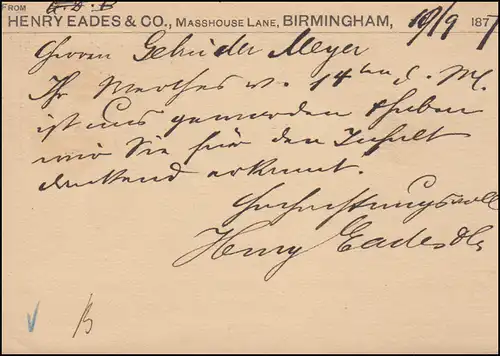 FROM
HENRY EADES & CO., MASSHOUSE LANE, BIRMINGHAM, 19/9 187
Herren Gebrüder Meyer
Ihr Werthes v. 14ten d. M.
ist uns geworden & haben
wir Sie für den Inhalt
dankend erkannt.
Hochachtungsvoll
Henry Eades & Co
B